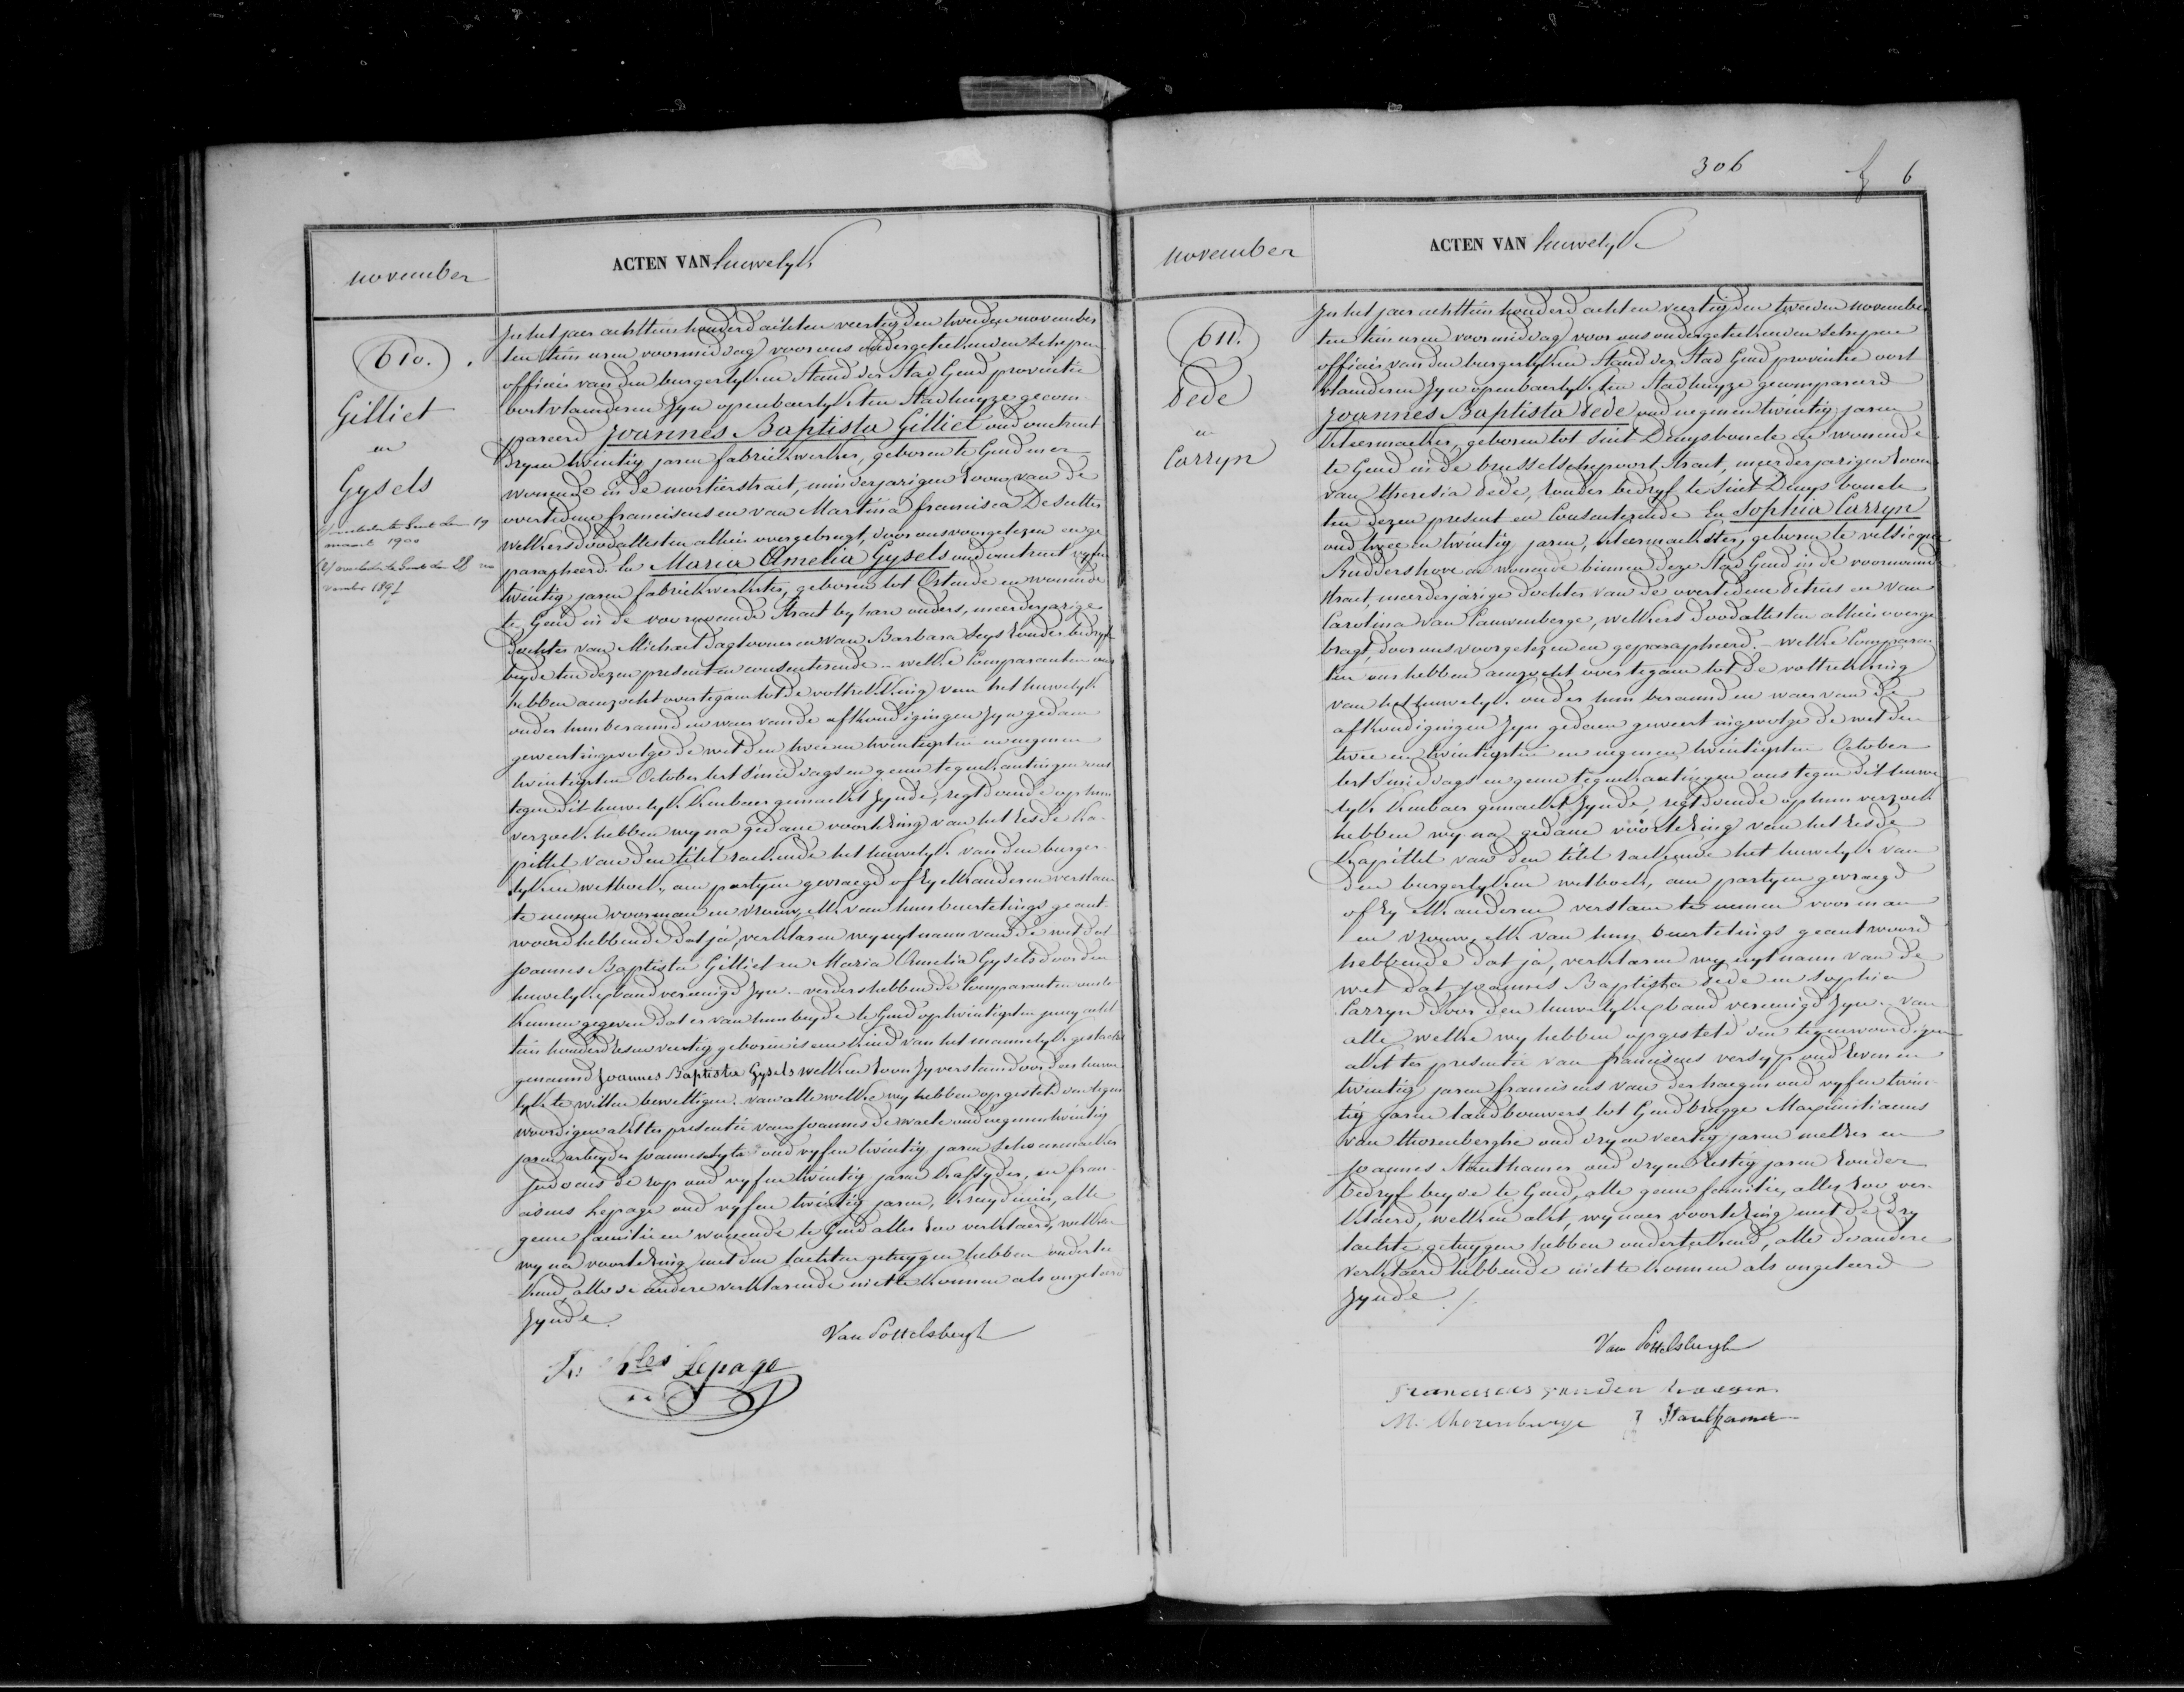 november
ACTEN VAN huwelyk
610.
Gilliet
en
Gysels
overleden te Gent den 19
maart 1900
overleden te Gent den 28 no
vember 1897
In het jaer achttien honderd acht en veertig den tweeden november
ten tien uren voormiddag voor ons ondergeteekenden Schepen
officier van den burgerlyken Stand der Stad Gend provintie
oostvlaenderen Zyn openbaerlyk ten Stadhuyze gecom
pareerd Joannes Baptista Gilliet oud ontrent
dryentwintig jaren fabriekwerker, geboren te Gend en er
wonende in de mortierstraet, minderjarigen Zoon van de
overledene franciscus en van Martina francisca De Sutter
welkers doodakten alhier overgebragt, door ons voorgelezen en ge
parapheerd. En Maria Amelia Gysels oud ontrent vyfen
twintig jaren fabriekwerkster, geboren tot Ostende en wonende
te Gend in de voormuide straet by hare ouders, meerderjarige
dochter van Michael daglooner en van Barbara Seys zonder bedryf
beyde ten dezen present en consenterende – welke Comparanten ons
hebben aenzocht over te gaen tot de voltrekking van het huwelyk
onder hun beraemd en waer van de afkondigingen Zyn gedaen
geweest ingevolge de wet den twee en twintigsten en negenen
twintigsten October lest S'middags en geene tegenkantingen ons
tegen dit huwelyk kenbaer gemaekt Zynde, regtdoende op hun
verzoek hebben wy na gedane voorlezing van het zesde ka-
pittel van den titel raekende het huwelyk van den burger-
lyken wetboek, aen partyen gevraegd of Zy elkanderen verstaen
te nemen voor man en vrouw, elk van hun beurtelings geant-
woord hebbende dat ja, verklaren wy uyt naem van de wet dat
Joannes Baptista Gilliet en Maria Amelia Gysels door den
huwelyksband vereenigd Zyn. – verders hebben de Comparanten ons te
kennen gegeven dat er van hun beyde te Gend op twintigsten juny acht
tien honderd zes en veertig geboren is een kind van het mannelyk geslacht
genaemd Joannes Baptista Gysels welken Zoon Zy verstaen door den huwe
lyk te willen bewettigen. van alle welke wy hebben opgesteld den tegen
woordigen akt ter presentie van Joannes de waele oud negenentwintig
jaren arbeyder Joannes Lyts oud vyfentwintig jaren Schoenmaeker
Judocus de rop oud vyfentwintig jaren Kassyder, en fran-
ciscus Lepage oud vyfen twintig jaren, kruydenier, alle
geene familie en wonende te Gend alles Zoo verklaerd, welken
wy na voorlezing met den laetsten getuygen hebben ondertee
kend, alle de andere verklarende niet te konnen als ongeleerd
Zynde.
Van Pottelsbergh
Lepage
306
6
november
ACTEN VAN huwelyk
611.
Dede
en
Carryn
In het jaer achttien honderd acht en veertig den tweeden november
ten tien uren voormiddag voor ons ondergeteekenden Schepen
officier van den burgerlyken Stand der Stad Gend provintie oost
vlaenderen Zyn openbaerlyk ten Stadhuyze gecompareerd
Joannes Baptista Dede oud negenentwintig jaren
kleermaeker, geboren tot Sint Denys boucle en wonende
te Gend in de brusselschepoort straet, meerderjarigen Zoon
van theresia Dede, zonder bedryf te Sint Denys boucle
ten dezen present en Consenterende En Sophia Carryn
oud twee en twintig jaren, kleermaekster, geboren te velsicque
Ruddershove en wonende binnen deze Stad Gend in de voormuid
straet, meerderjarige dochter van de overledene Petrus en van
Carolina van Cauwenberge, welkers doodakten alhier overge
bragt, door ons voorgelezen en geparapheerd. – welke Comparan
ten ons hebben aenzocht over te gaen tot de voltrekking
van het huwelyk onder hun beraemd en waer van de
afkondigingen Zyn gedaen geweest ingevolge de wet den
twee en twintigsten en negenen twintigsten October
lest S'middags en geene tegenkantingen ons tegen dit huwe
lyk kenbaer gemaekt Zynde, regtdoende op hun verzoek
hebben wy na gedane voorlezing van het zesde
Kapittel van den titel raekende het huwelyk van
den burgerlyken wetboek, aen partyen gevraegd
of Zy elkanderen verstaen te nemen voor man
en vrouw, elk van hun beurtelings geantwoord
hebbende dat ja, verklaren wy uyt naem van de
wet dat Joannes Baptista Dede en Sophia
Carryn door den huwelyksband vereenigd Zyn. – van
alle welke wy hebben opgesteld den tegenwoordigen
akt ter presentie van franciscus versyp oud zeven en
twintig jaren franciscus van der haegen oud vyfen twin
tig jaren landbouwers tot Gendbrugge Maximilianus
van thorenberghe oud dryen veertig jaren melker en
Joannes Stauthamer oud dryen zestig jaren zonder
bedryf beyde te Gend, alle geene familie, alles Zoo ver-
klaerd, welken akt, wy naer voorlezing met de dry
laetste getuygen hebben onderteekend, alle de andere
verklaerd hebbende niet te konnen als ongeleerd
Zynde ./.
Van Pottelsbergh
Franciscus vanden haegen
M. thorenberge J Stauthamer